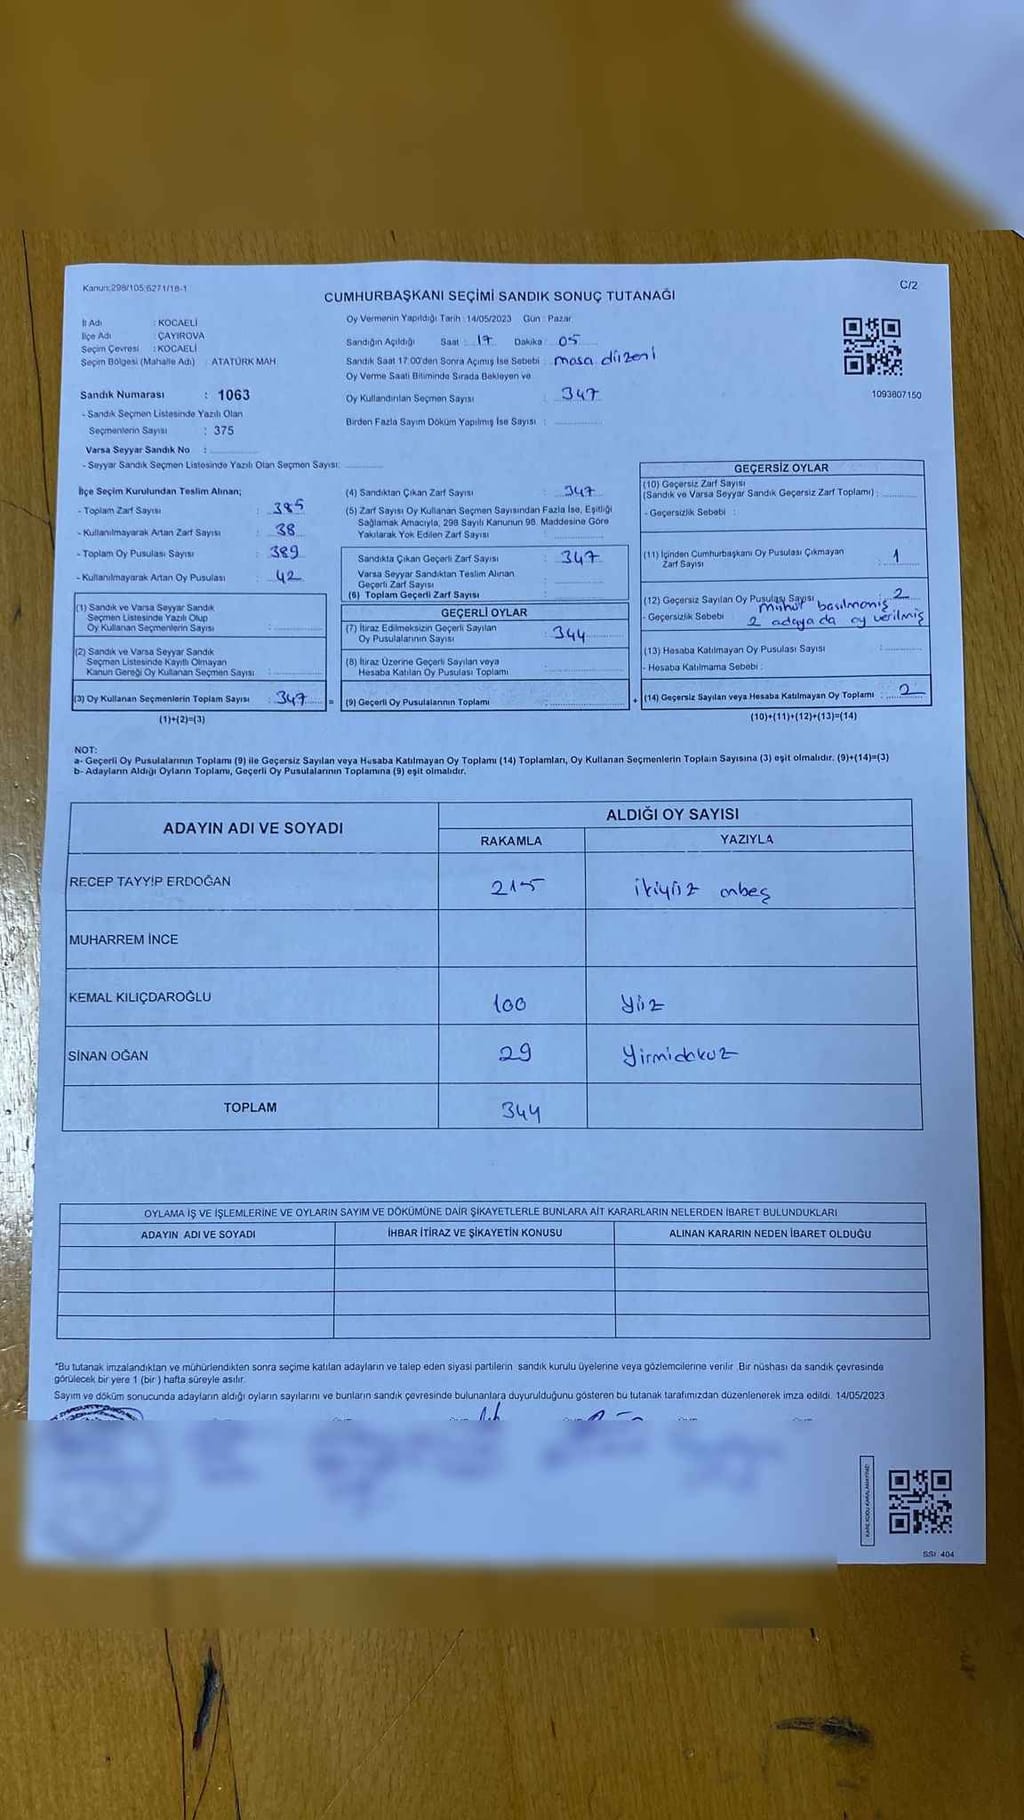 Kanun:298/105;6271/18-1
C/2
CUMHURBAŞKANI SEÇİMİ SANDIK SONUÇ TUTANAĞI
İl Adı : KOCAELİ
İlçe Adı : ÇAYIROVA
Seçim Çevresi : KOCAELİ
Seçim Bölgesi (Mahalle Adı) : ATATÜRK MAH
Sandık Numarası : 1063
- Sandık Seçmen Listesinde Yazılı Olan
Seçmenlerin Sayısı : 375
Varsa Seyyar Sandık No :
- Seyyar Sandık Seçmen Listesinde Yazılı Olan Seçmen Sayısı:
Oy Vermenin Yapıldığı Tarih : 14/05/2023 Gün : Pazar
Sandığın Açıldığı Saat : 17 Dakika : 05
Sandık Saat 17:00'den Sonra Açımış İse Sebebi : masa düzeni
Oy Verme Saati Bitiminde Sırada Bekleyen ve
Oy Kullandırılan Seçmen Sayısı : 347
Birden Fazla Sayım Döküm Yapılmış İse Sayısı :
1093807150
İlçe Seçim Kurulundan Teslim Alınan;
- Toplam Zarf Sayısı : 385
- Kullanılmayarak Artan Zarf Sayısı : 38
- Toplam Oy Pusulası Sayısı : 389
- Kullanılmayarak Artan Oy Pusulası : 42
(1) Sandık ve Varsa Seyyar Sandık
Seçmen Listesinde Yazılı Olup
Oy Kullanan Seçmenlerin Sayısı :
(2) Sandık ve Varsa Seyyar Sandık
Seçmen Listesinde Kayıtlı Olmayan
Kanun Gereği Oy Kullanan Seçmen Sayısı :
(3) Oy Kullanan Seçmenlerin Toplam Sayısı : 347
(1)+(2)=(3)
=
(4) Sandıktan Çıkan Zarf Sayısı : 347
(5) Zarf Sayısı Oy Kullanan Seçmen Sayısından Fazla İse, Eşitliği
Sağlamak Amacıyla, 298 Sayılı Kanunun 98. Maddesine Göre
Yakılarak Yok Edilen Zarf Sayısı :
Sandıkta Çıkan Geçerli Zarf Sayısı : 347
Varsa Seyyar Sandıktan Teslim Alınan
Geçerli Zarf Sayısı :
(6) Toplam Geçerli Zarf Sayısı :
GEÇERLİ OYLAR
(7) İtiraz Edilmeksizin Geçerli Sayılan
Oy Pusulalarının Sayısı : 344
(8) İtiraz Üzerine Geçerli Sayılan veya
Hesaba Katılan Oy Pusulası Toplamı :
(9) Geçerli Oy Pusulalarının Toplamı :
+
GEÇERSİZ OYLAR
(10) Geçersiz Zarf Sayısı
(Sandık ve Varsa Seyyar Sandık Geçersiz Zarf Toplamı) :
- Geçersizlik Sebebi :
(11) İçinden Cumhurbaşkanı Oy Pusulası Çıkmayan
Zarf Sayısı : 1
(12) Geçersiz Sayılan Oy Pusulası Sayısı : 2
mühür basılmamış
- Geçersizlik Sebebi 2 adayada oy verilmiş
(13) Hesaba Katılmayan Oy Pusulası Sayısı :
- Hesaba Katılmama Sebebi :
(14) Geçersiz Sayılan veya Hesaba Katılmayan Oy Toplamı : 2
(10)+(11)+(12)+(13)=(14)
NOT:
a- Geçerli Oy Pusulalarının Toplamı (9) ile Geçersiz Sayılan veya Hesaba Katılmayan Oy Toplamı (14) Toplamları, Oy Kullanan Seçmenlerin Toplam Sayısına (3) eşit olmalıdır. (9)+(14)=(3)
b- Adayların Aldığı Oyların Toplamı, Geçerli Oy Pusulalarının Toplamına (9) eşit olmalıdır.
ADAYIN ADI VE SOYADI
ALDIĞI OY SAYISI
RAKAMLA YAZIYLA
RECEP TAYYİP ERDOĞAN 215 ikiyüz onbeş
MUHARREM İNCE
KEMAL KILIÇDAROĞLU 100 yüz
SİNAN OĞAN 29 yirmidokuz
TOPLAM 344
OYLAMA İŞ VE İŞLEMLERİNE VE OYLARIN SAYIM VE DÖKÜMÜNE DAİR ŞİKAYETLERLE BUNLARA AİT KARARLARIN NELERDEN İBARET BULUNDUKLARI
ADAYIN ADI VE SOYADI İHBAR İTİRAZ VE ŞİKAYETİN KONUSU ALINAN KARARIN NEDEN İBARET OLDUĞU
*Bu tutanak imzalandıktan ve mühürlendikten sonra seçime katılan adayların ve talep eden siyasi partilerin sandık kurulu üyelerine veya gözlemcilerine verilir. Bir nüshası da sandık çevresinde
görülecek bir yere 1 (bir) hafta süreyle asılır.
Sayım ve döküm sonucunda adayların aldığı oyların sayılarını ve bunların sandık çevresinde bulunanlara duyurulduğunu gösteren bu tutanak tarafımızdan düzenlenerek imza edildi. 14/05/2023
KARE KODU KARALAMAYINIZ!
SSI: 404